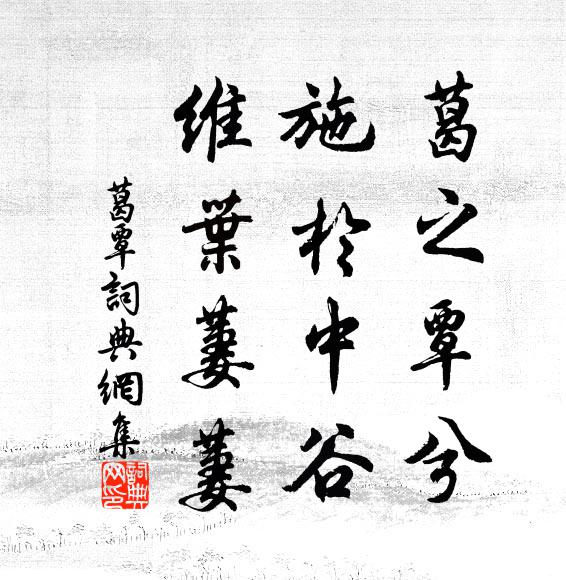 葛之覃兮
施於中谷
維葉萋萋
葛覃詞典網集
詞典
网印